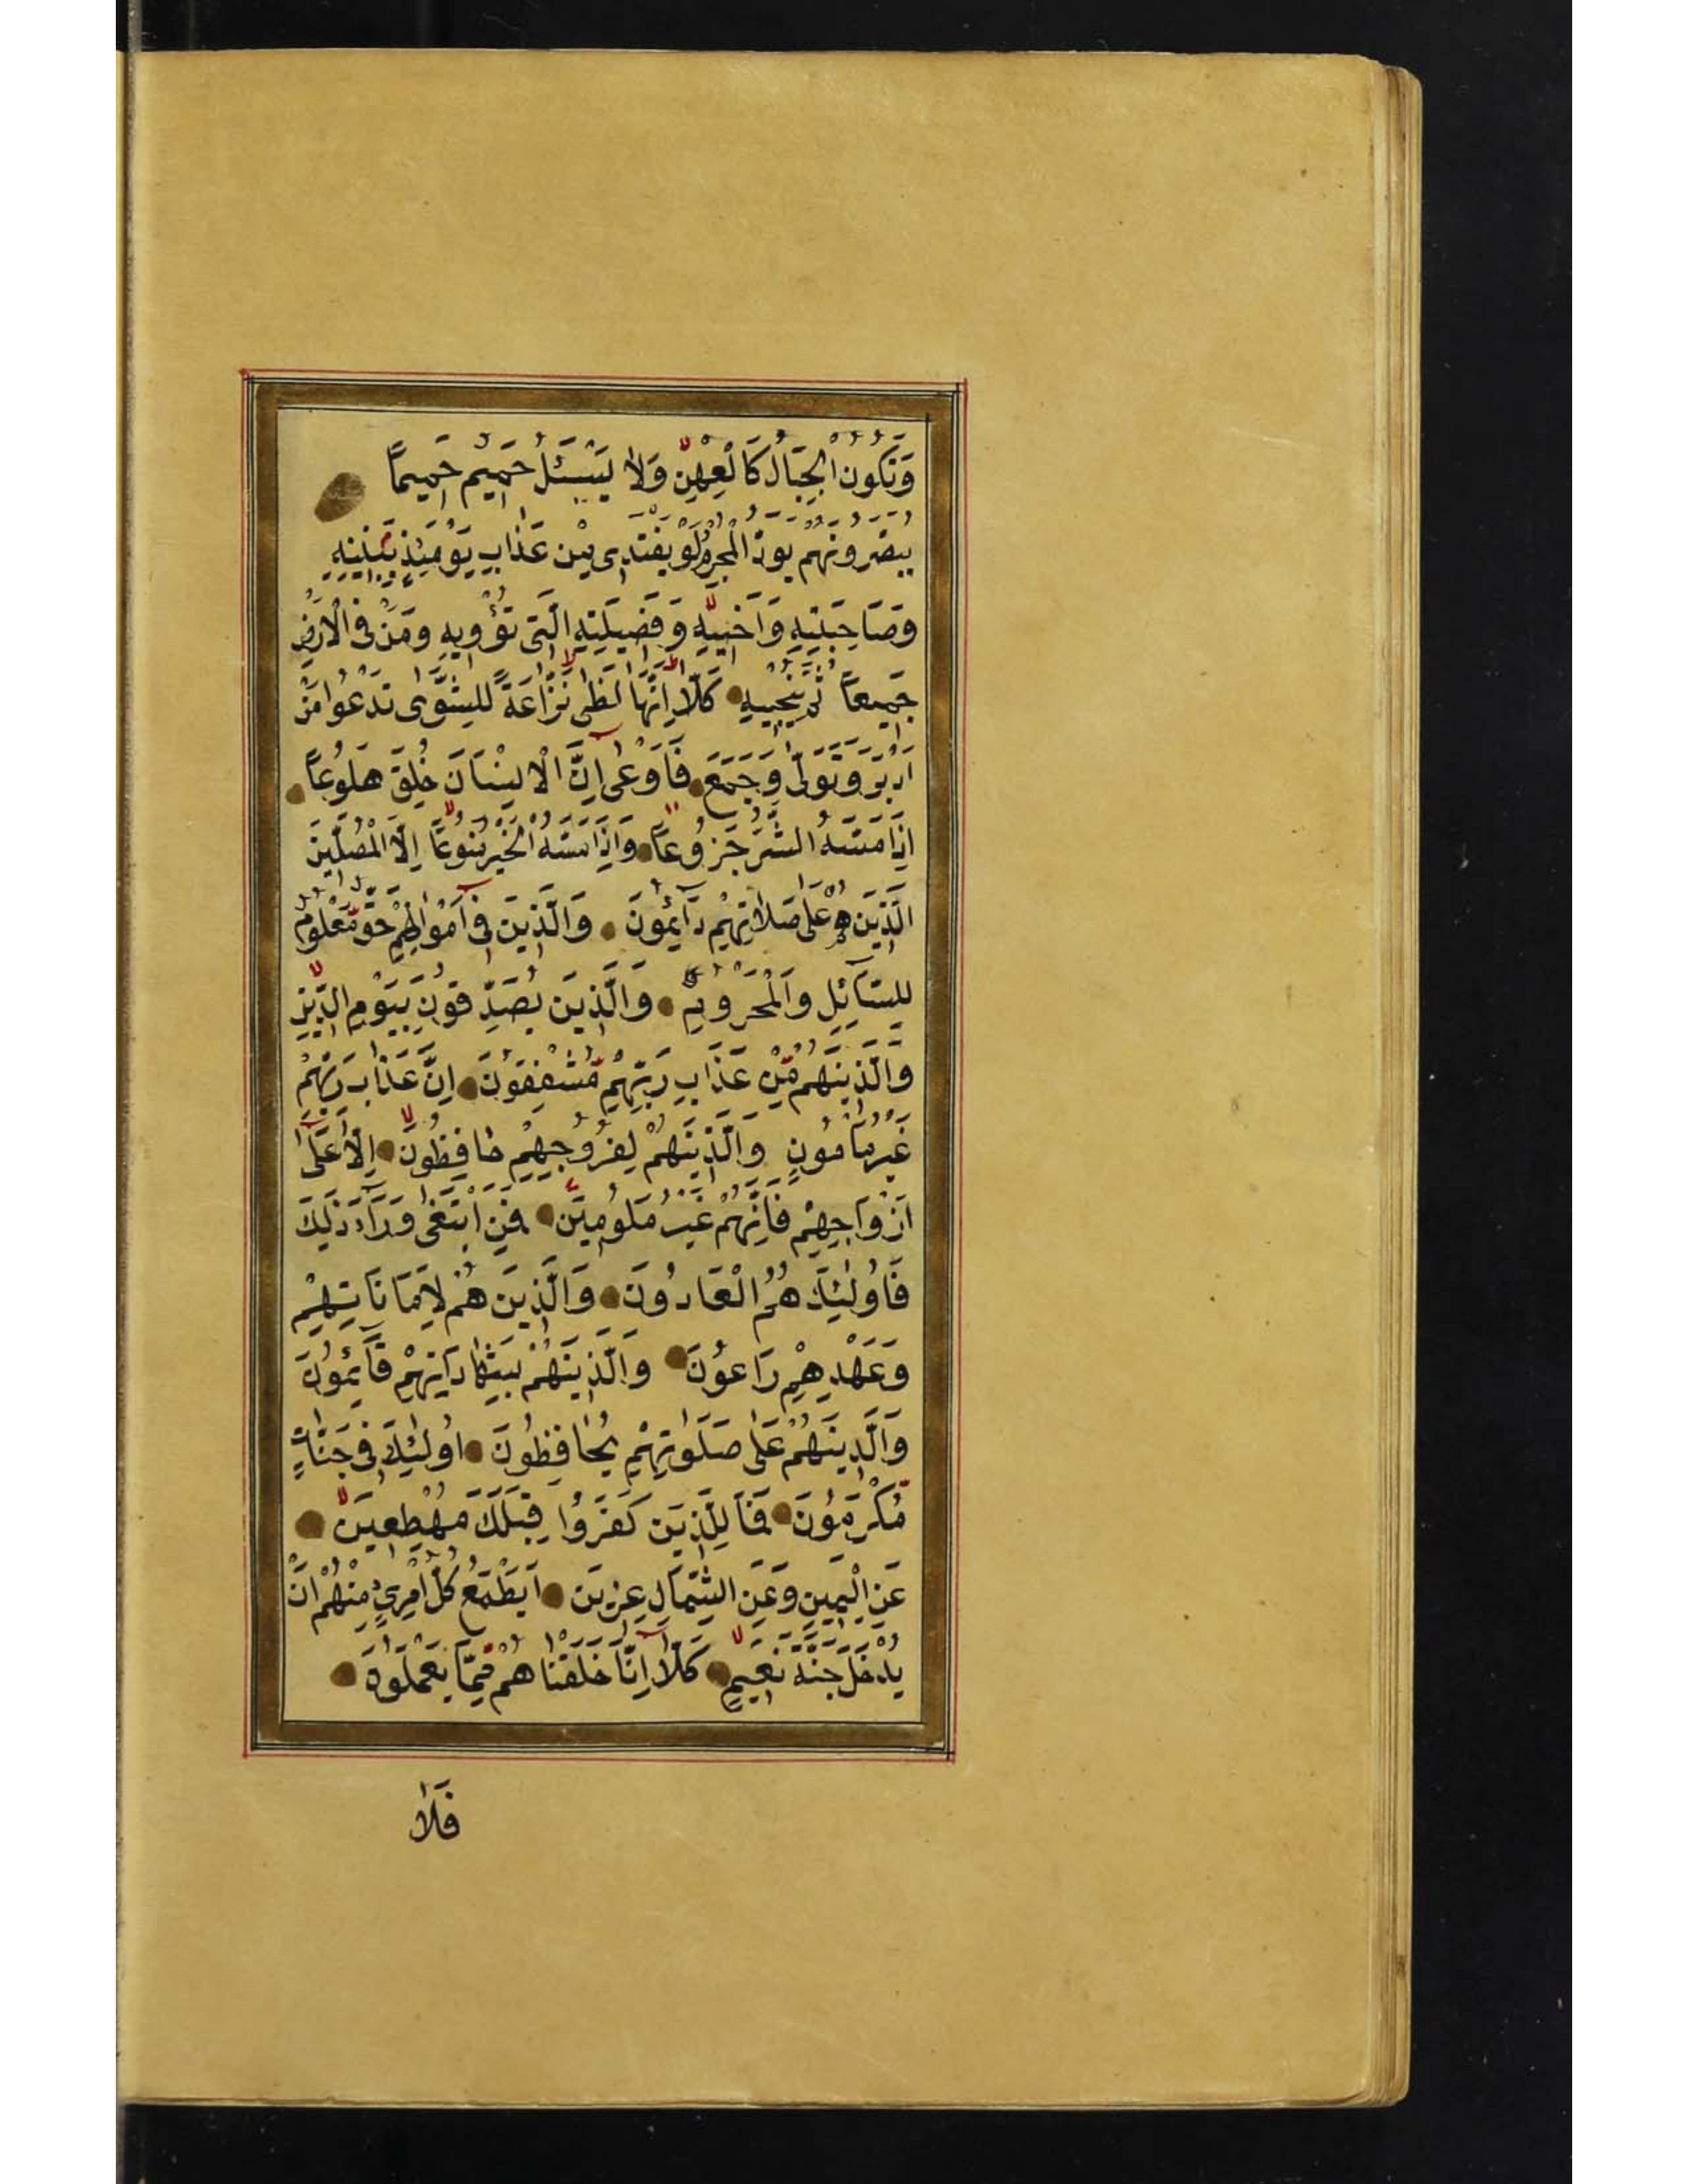 وَتَكُونُ الْجِبَالُ كَالْعِهْنِ وَلَا يَسْئَلُ حَمِيمٌ حَمِيمًا
يُبَصَّرُونَهُمْ يَوَدُّ الْمُجْرِمُ لَوْ يَفْتَدِى مِنْ عَذَابِ يَوْمَئِذٍ بِبَنِيهِ
وَصَاحِبَتِهِ وَاَخِيهِ وَفَصِيلَتِهِ الَّتِى تُؤْوِيهِ وَمَنْ فِى الْاَرْضِ
جَمِيعًا ثُمَّ يُنْجِيهِ كَلَّا اِنَّهَا لَظٰى نَزَّاعَةً لِلشَّوٰى تَدْعُوا مَنْ
اَدْبَرَ وَتَوَلّٰى وَجَمَعَ فَاَوْعٰى اِنَّ الْاِنْسَانَ خُلِقَ هَلُوعًا
اِذَا مَسَّهُ الشَّرُّ جَزُوعًا وَاِذَا مَسَّهُ الْخَيْرُ مَنُوعًا اِلَّا الْمُصَلِّينَ
الَّذِينَ هُمْ عَلٰى صَلَاتِهِمْ دَآئِمُونَ وَالَّذِينَ فِى اَمْوَالِهِمْ حَقٌّ مَعْلُومٌ
لِلسَّآئِلِ وَالْمَحْرُومِ وَالَّذِينَ يُصَدِّقُونَ بِيَوْمِ الدِّينِ
وَالَّذِينَهُمْ مِنْ عَذَابِ رَبِّهِمْ مُشْفِقُونَ اِنَّ عَذَابَ رَبِّهِمْ
غَيْرُ مَاْمُونٍ وَالَّذِينَهُمْ لِفُرُوجِهِمْ حَافِظُونَ اِلَّا عَلٰى
اَزْوَاجِهِمْ فَاِنَّهُمْ غَيْرُ مَلُومِينَ فَمَنِ ابْتَغٰى وَرَآءَ ذٰلِكَ
فَاُولٰئِكَ هُمُ الْعَادُونَ وَالَّذِينَ هُمْ لِاَمَانَاتِهِمْ
وَعَهْدِهِمْ رَاعُونَ وَالَّذِينَهُمْ بِشَهَادَاتِهِمْ قَآئِمُونَ
وَالَّذِينَهُمْ عَلٰى صَلَوٰتِهِمْ يُحَافِظُونَ اُولٰئِكَ فِى جَنَّاتٍ
مُكْرَمُونَ فَمَالِ الَّذِينَ كَفَرُوا قِبَلَكَ مُهْطِعِينَ
عَنِ الْيَمِينِ وَعَنِ الشِّمَالِ عِزِينَ اَيَطْمَعُ كُلُّ امْرِئٍ مِنْهُمْ اَنْ
يُدْخَلَ جَنَّةَ نَعِيمٍ كَلَّا اِنَّا خَلَقْنَاهُمْ مِمَّا يَعْمَلُونَ
فَلَا